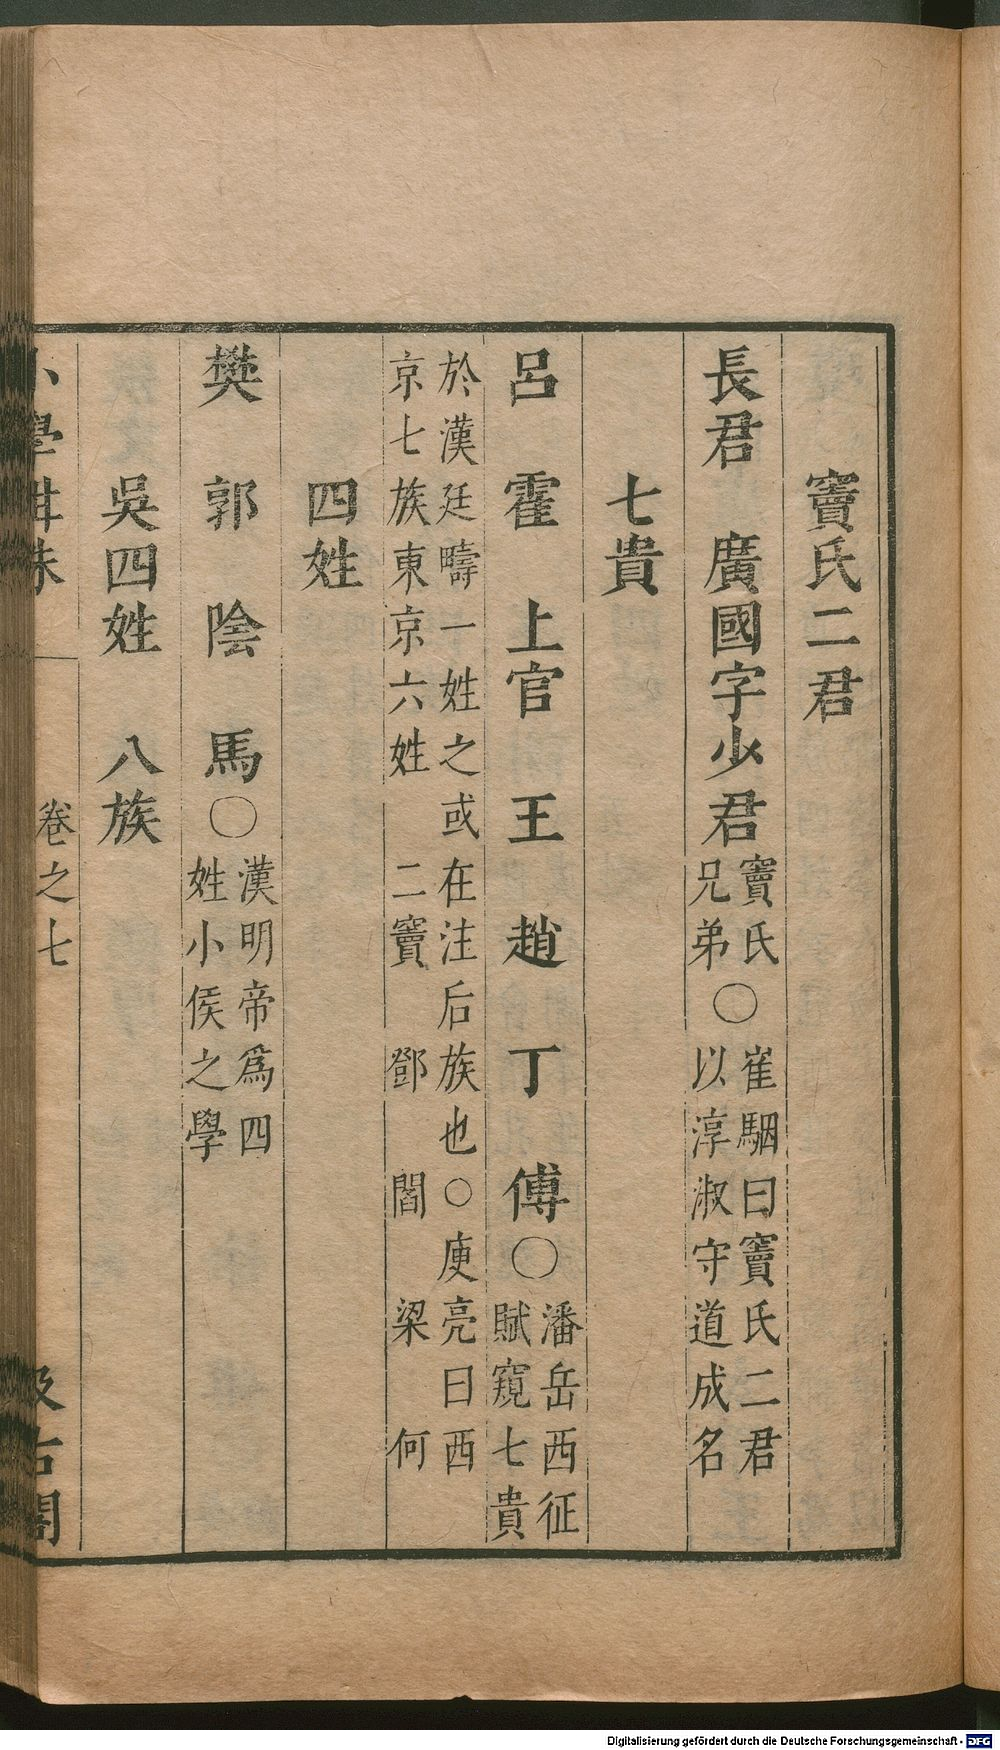 竇氏二君
長君　廣國字少君竇氏兄弟○崔駰曰竇氏二君以淳淑守道成名
七貴
呂　霍　上官　王　趙　丁　傅○潘岳西征賦窺七貴
於漢廷疇一姓之或在注后族也○庾亮曰西
京七族東京六姓　二竇　鄧　閻　梁　何
四姓
樊　郭　陰　馬○漢明帝爲四姓小侯之學
吳四姓　八族
小學紺珠　卷之七　汲古閣
Digitalisierung gefördert durch die Deutsche Forschungsgemeinschaft - DFG